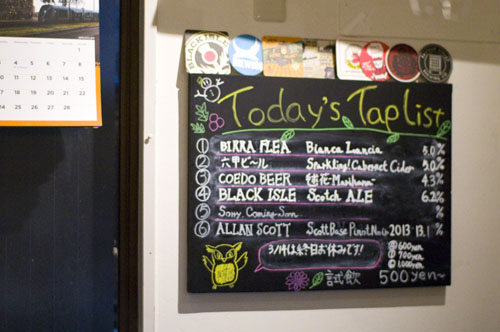 BLACK ISLE
Today's Tap List
① BIRRA FLEA Bianca Lancia 5.0%
② 六甲ビール Sparkling! Cabernet Cider 5.0%
③ COEDO BEER 毬花-Marihana- 4.3%
④ BLACK ISLE Scotch ALE 6.2%
⑤ Sorry Coming Soon %
⑥ ALLAN SCOTT Scott Base Pinot Noir 2013 13.1%
3/14は終日お休みです!
Ⓢ 600yen
700yen
Ⓛ 1,000yen
試飲 500yen~
1
2
3
4
5
6
7
8
10
11
12
13
14
15
17
18
19
20
21
22
24
25
26
27
28